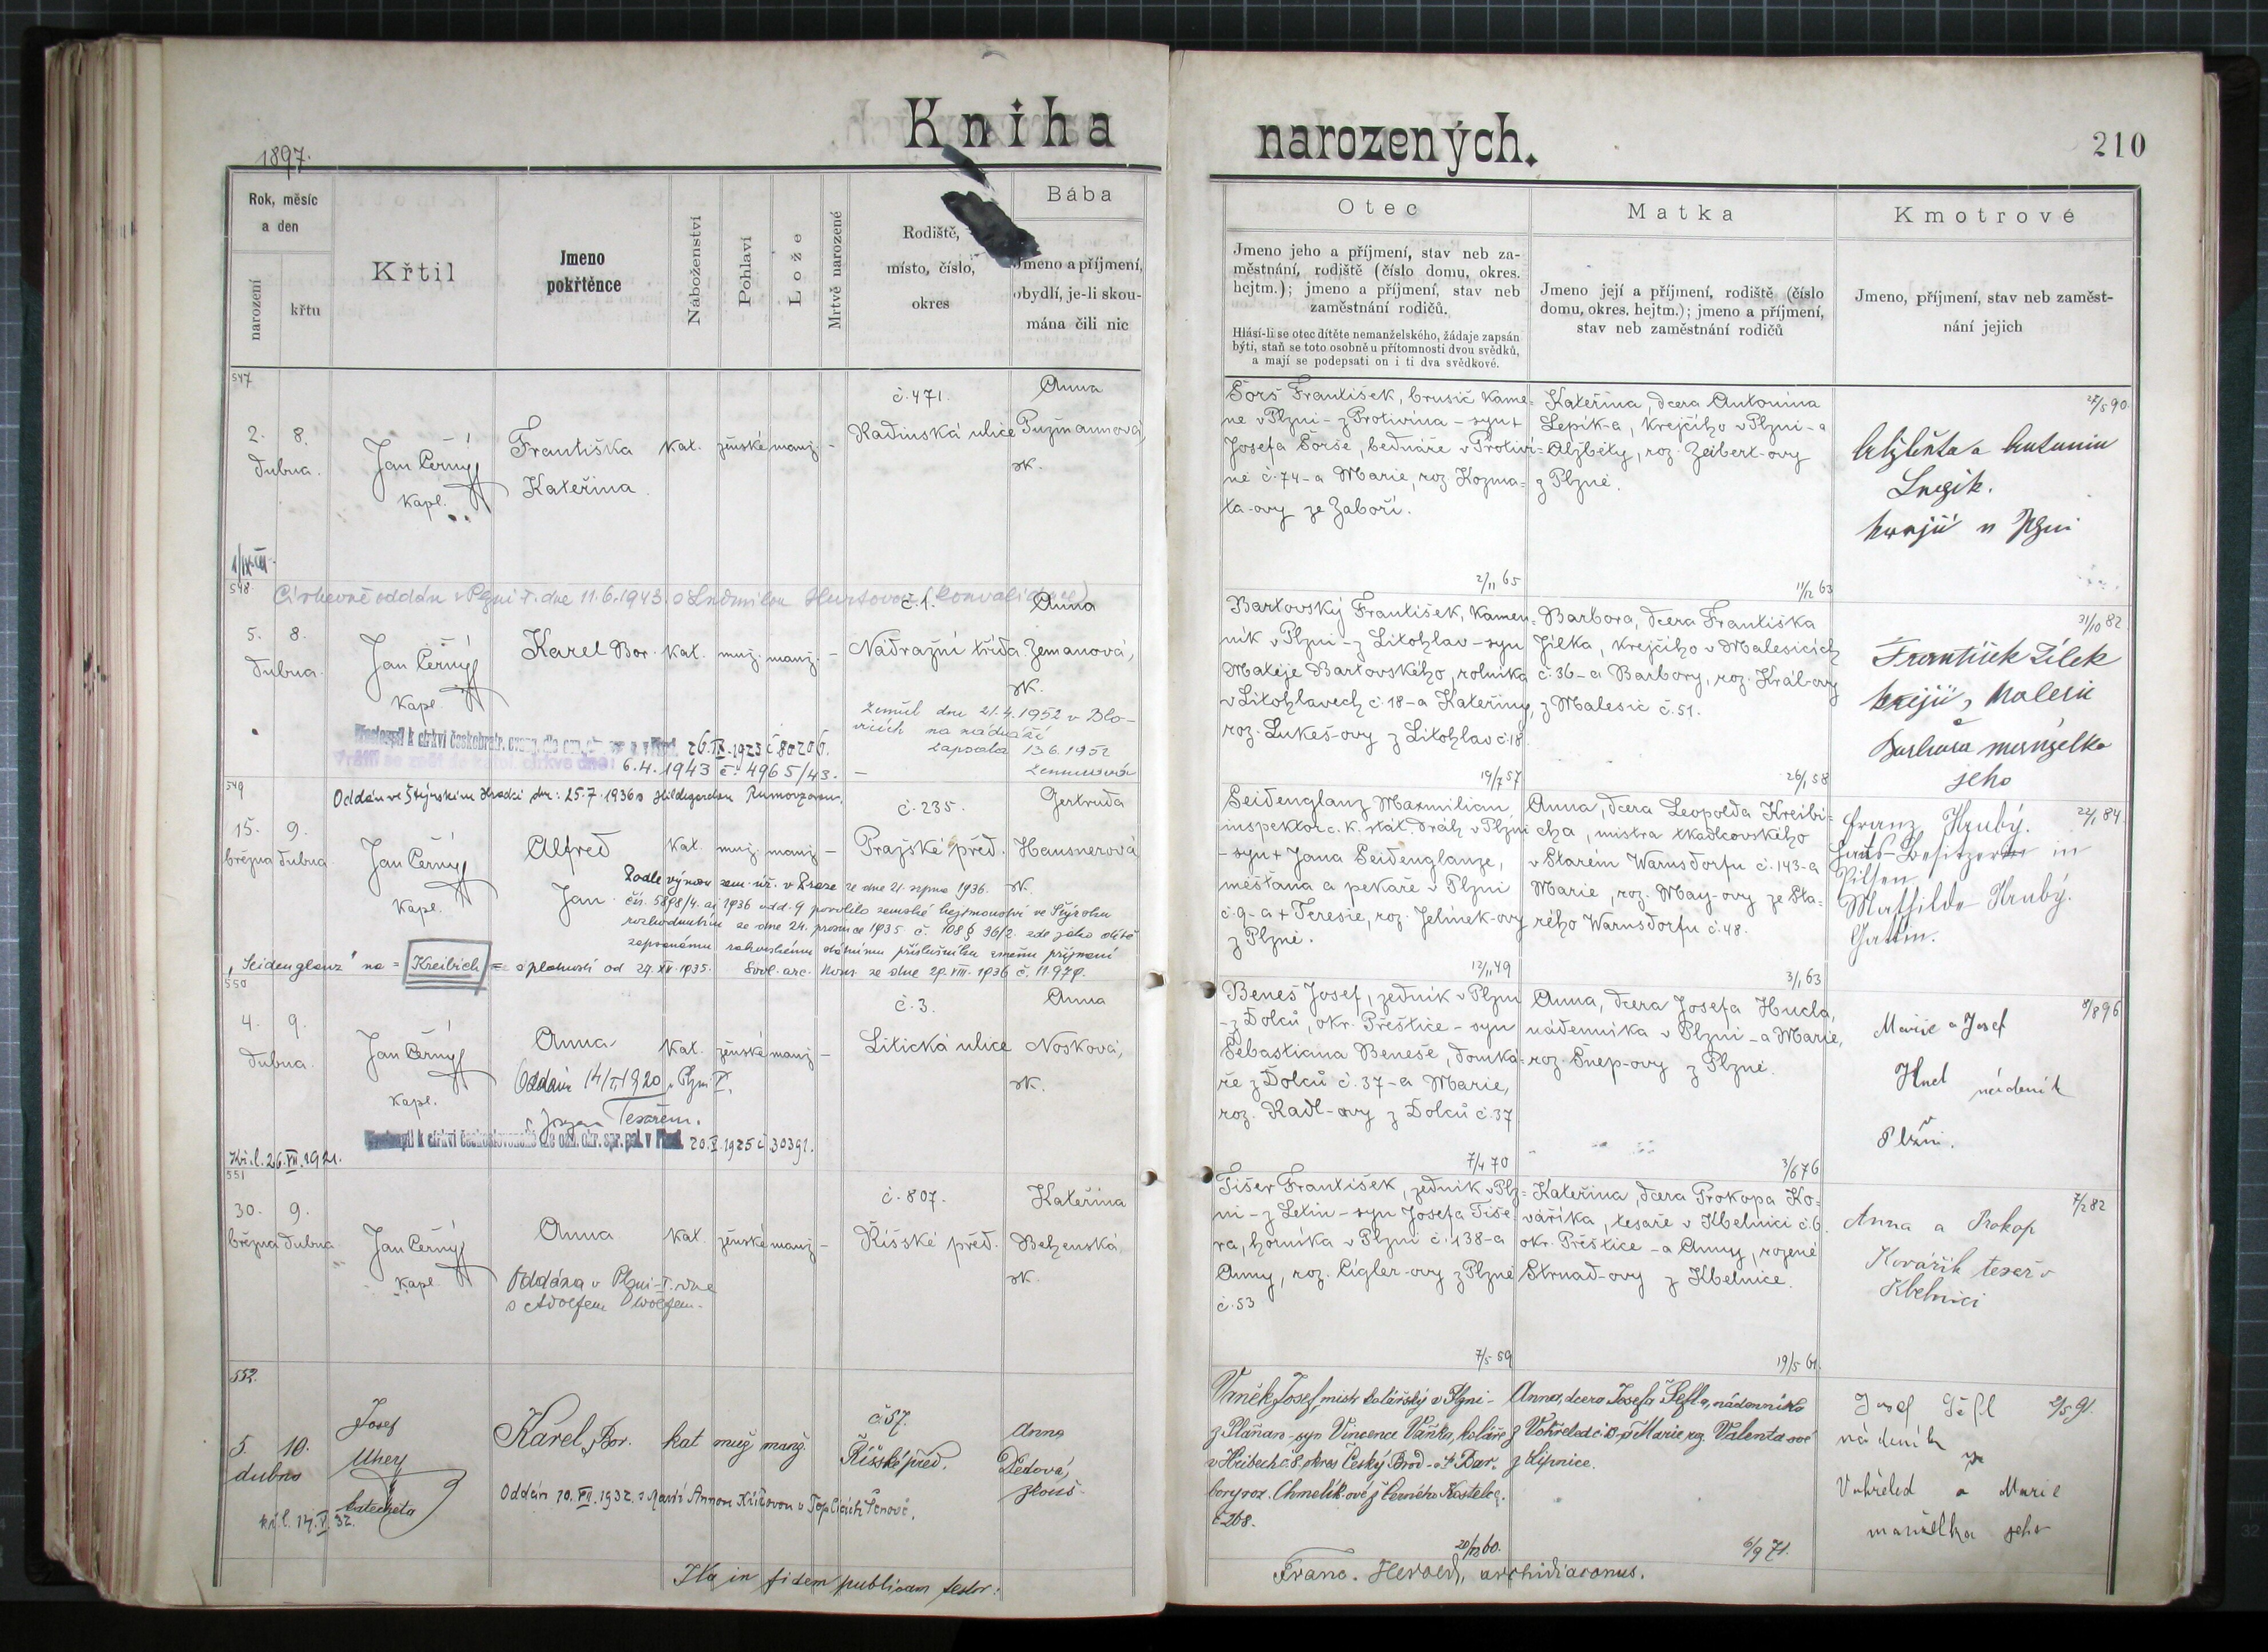 Kniha narozených.
1897.
210
Rok, měsíc a den
narození
křtu
Křtil
Jmeno pokřtěnce
Náboženství
Pohlaví
Lože
Mrtvě narozené
Rodiště,
místo, číslo,
okres
Bába
Jmeno a příjmení,
obydlí, je-li skou-
mána čili nic
Otec
Jmeno jeho a příjmení, stav neb za-
městnání, rodiště (číslo domu, okres.
hejtm.); jmeno a příjmení, stav neb
zaměstnání rodičů.
Hlásí-li se otec dítěte nemanželského, žádaje zapsán
býti, staň se toto osobně u přítomnosti dvou svědků,
a mají se podepsati on i ti dva svědkové.
Matka
Jmeno její a příjmení, rodiště (číslo
domu, okres. hejtm.); jmeno a příjmení,
stav neb zaměstnání rodičů
Kmotrové
Jmeno, příjmení, stav neb zaměst-
nání jejich
547
2. 8.
dubna.
Jan Černý
Kapl.
Františka
Kateřina
Kat. ženské manž. -
č. 471.
Radinská ulice
Anna
Puzmannová,
zk.
Šorš František, brusič kame-
ne v Plzni - z Protivína - syn +
Josefa Šorše, bednáře v Protiví-
ně č. 74 - a Marie, roz. Kozma-
ta-ovy ze Záboří.
2/11 65
Kateřina, dcera Antonína
Lepík-a, krejčího v Plzni - a
Alžběty, roz. Zeibert-ovy
z Plzně.
11/12 63
27/5 90.
Alžběta a Antonín
krejčí v Plzni
548.
Církevně oddán v Plzni dne 11.6.1943 s Ludmilou (konvalidace)
5. 8.
dubna.
Jan Černý
Kapl.
Karel Bor.
Kat. muž. manž. -
č. 1.
Nádražní třída.
Anna
Zemanová,
zk.
Zemřel dne 21.4.1952 v Blo-
vicích na nádraží
zapsala 13.6.1952
Přestoupil k církvi českobratr. evang. 26.IX.1923 č 80206.
Vrátil se zpět do katol. církve dne: 6.4.1943 č. 4965/43.
Bartovský František, kamen-
ník v Plzni - z Litohlav - syn
Matěje Bartovského, rolníka
v Litohlavech č. 18 - a Kateřiny,
roz. Lukeš-ovy z Litohlav č. 18.
19/7 57
Barbora, dcera Františka
Jílka, krejčího v Malesicích
č. 36 - a Barbory, roz. Král-ovy
z Malesic č. 51.
26/1 58
31/10 82.
František Jílek
krejčí, Malesic
Barbora manželka
jeho
549
Oddán ve Štýrském Hradci dne: 25.7.1936 s Hildegardou
15. 9.
března dubna
Jan Černý
Kapl.
Alfred
Jan.
Kat. muž. manž. -
č. 235.
Pražské před.
Gertruda
Hausnerová
zk.
Podle výnosu zem. úř. v Praze ze dne 21. srpna 1936.
čís. 5898/4. ai 1936 odd. 9 povolilo zemské hejtmanství ve Štýrsku
rozhodnutím ze dne 24. prosince 1935 č. 108 § 96/2. zde jako dítě
zapsanému rakouskému státnímu příslušníku změnu příjmení
„Seidenglanz" na = Kreibich = s platností od 27.XII.1935. ze dne 29.VIII.1936 č. 11.979.
Seidenglanz Maxmilian
inspektor c. k. stát. dráh v Plzni
- syn + Jana Seidenglanze,
měšťana a pekaře v Plzni
č. 9 - a + Teresie, roz. Jelínek-ovy
z Plzně.
12/11 49
Anna, dcera Leopolda Kreibi-
cha, mistra tkadlcovského
v Starém Warnsdorfu č. 143 - a
Marie, roz. May-ovy ze Sta-
rého Warnsdorfu č. 48.
3/1 63
22/1 84
Franz Hrubý.
Haus-Besitzer in
Pilsen
Mathilde Hrubý.
Gattin.
550
4. 9.
dubna.
Jan Černý
Kapl.
Anna
Kat. ženské manž. -
č. 3.
Litická ulice
Anna
Nosková,
zk.
Oddána 14/II 1920 v Plzni
s Josefem Tesařem.
Přestoupil k církvi československé dle ozn. okr. spr. pol. v Plzni. 20.V.1925 č 30391.
Kř. l. 26.VII.1921.
Beneš Josef, zedník v Plzni
- z Dolců, okr. Přeštice - syn
Šebastiana Beneše, domká-
ře z Dolců č. 37 - a Marie,
roz. Kadl-ovy z Dolců č. 37
7/4 70
Anna, dcera Josefa Hucla,
nádenníka v Plzni - a Marie,
roz. Šnep-ovy z Plzně.
3/6 76
8/8 96
Marie a Josef
nádeník
Plzni.
551
30. 9.
března dubna
Jan Černý
Kapl.
Anna
Kat. ženské manž. -
č. 807.
Říšské před.
Kateřina
Behenská.
zk.
Oddána v Plzni - I. dne
s Adolfem
Tišer František, zedník v Plz-
ni - z Letin - syn Josefa Tiše-
ra, horníka v Plzni č. 138 - a
Anny, roz. Cígler-ovy z Plzně
č. 53
7/5 59
Kateřina, dcera Prokopa Ko-
vaříka, tesaře v Kbelnici č. 6.
okr. Přeštice - a Anny, rozené
Strnad-ovy z Kbelnice.
19/5 61.
7/2 82
Anna a Prokop
Kovářík tesař v
Kbelnici
552.
5. 10.
dubna
Josef
Uher
katecheta
kř. l. 14.V.32.
Karel, Bor.
kat muž. manž.
č. 57.
Říšské před.
Anna
Dědová,
zkouš.
Oddán 10.VII.1932. s Marií Annou Křížovou v Teplicích Šanově.
Vaněk Josef, mistr kolářský v Plzni -
z Plaňan - syn Vincence Vaňka, koláře
v Hřibech č. 8. okres Český Brod - a + Bar-
bory roz. Chmelík-ové z Černého Kostelce.
č. 268.
20/12 60.
Anna, dcera Josefa Šefla, nádenníka
z Vohřeled č. 13 - a Marie roz. Valenta-ové
z Lipnice.
6/9 71.
Josef Šéfl
nádeník z
Vohřeled a Marie
manželka jeho
Ita in fidem publicam testor:
Franc. Herold, archidiaconus.